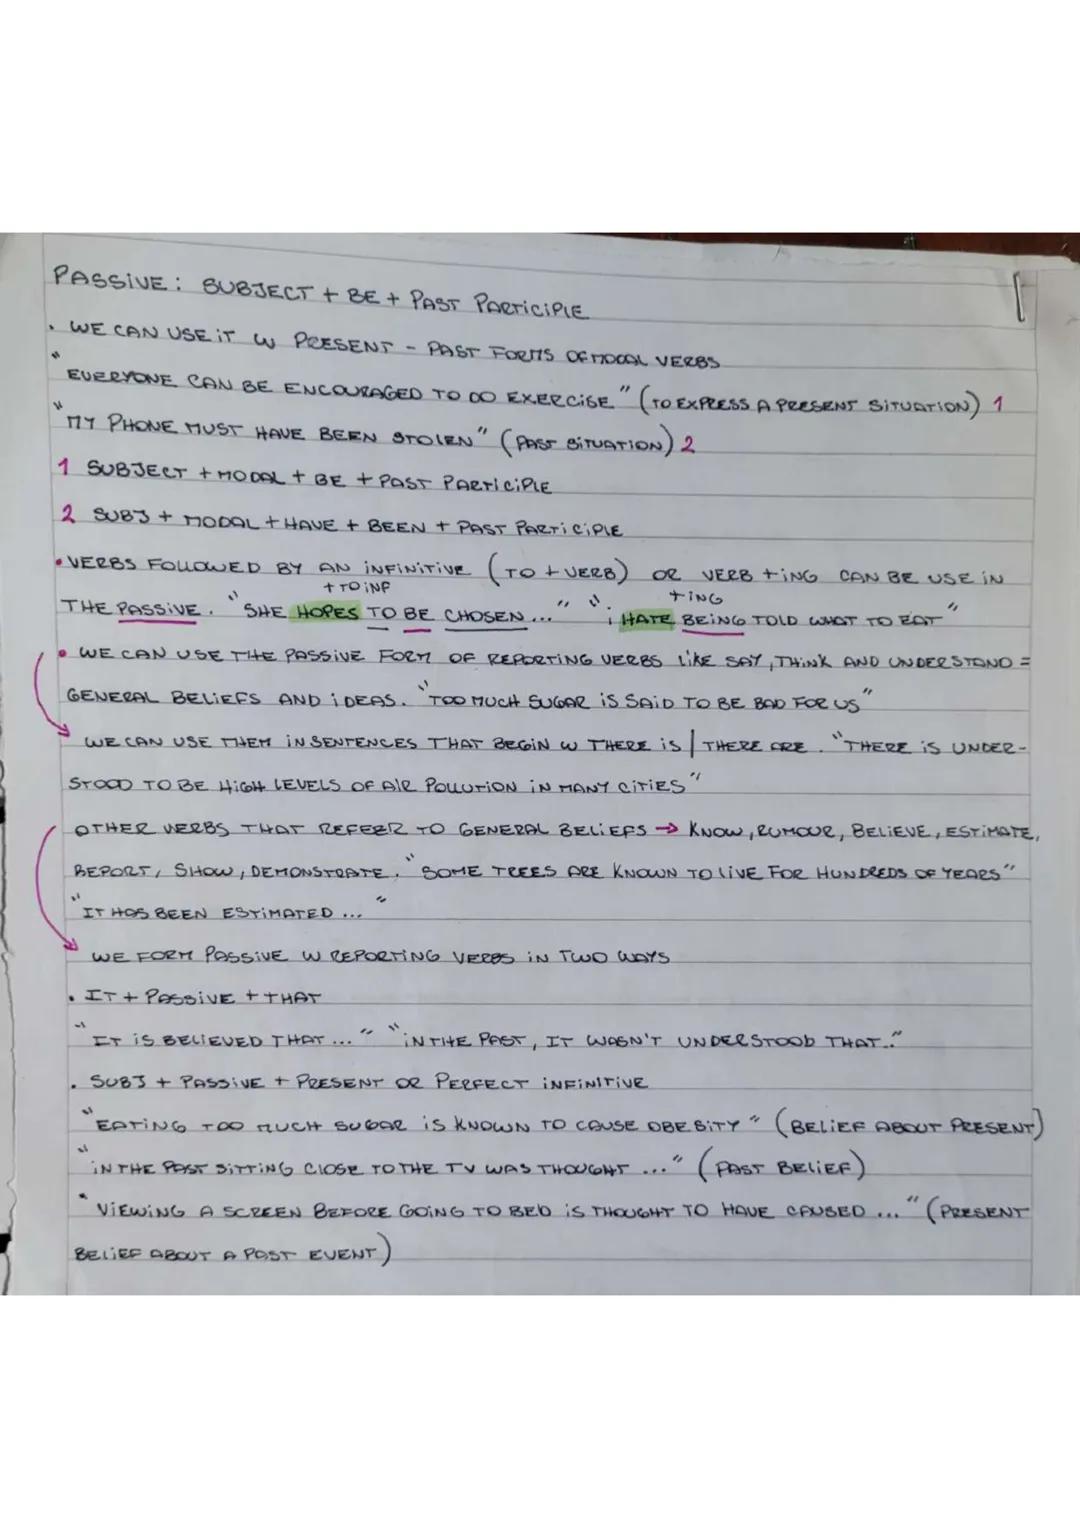 PASSIVE: SUBJECT + BE + PAST PARTICIPLE
• WE CAN USE IT W PRESENT - PAST FORMS OF MODAL VERBS
"EVERYONE CAN BE ENCOURAGED TO DO EXERCISE" (TO EXPRESS A PRESENT SITUATION) 1
"MY PHONE MUST HAVE BEEN STOLEN" (PAST SITUATION) 2
1 SUBJECT + MODAL + BE + PAST PARTICIPLE
2 SUBJ + MODAL + HAVE + BEEN + PAST PARTICIPLE
• VERBS FOLLOWED BY AN INFINITIVE (TO + VERB) OR VERB + ING CAN BE USE IN
+ TO INF + ING
THE PASSIVE. "SHE HOPES TO BE CHOSEN..." "I HATE BEING TOLD WHAT TO EAT"
• WE CAN USE THE PASSIVE FORM OF REPORTING VERBS LIKE SAY, THINK AND UNDERSTAND =
GENERAL BELIEFS AND IDEAS. "TOO MUCH SUGAR IS SAID TO BE BAD FOR US"
→ WE CAN USE THEM IN SENTENCES THAT BEGIN W THERE IS | THERE ARE. "THERE IS UNDER-
STOOD TO BE HIGH LEVELS OF AIR POLLUTION IN MANY CITIES"
OTHER VERBS THAT REFEER TO GENERAL BELIEFS → KNOW, RUMOUR, BELIEVE, ESTIMATE,
REPORT, SHOW, DEMONSTRATE. "SOME TREES ARE KNOWN TO LIVE FOR HUNDREDS OF YEARS"
"IT HAS BEEN ESTIMATED ..."
→ WE FORM PASSIVE W REPORTING VERBS IN TWO WAYS
• IT + PASSIVE + THAT
"IT IS BELIEVED THAT ..." "IN THE PAST, IT WASN'T UNDERSTOOD THAT.."
• SUBJ + PASSIVE + PRESENT OR PERFECT INFINITIVE
"EATING TOO MUCH SUGAR IS KNOWN TO CAUSE OBESITY" (BELIEF ABOUT PRESENT)
"IN THE PAST SITTING CLOSE TO THE TV WAS THOUGHT ..." (PAST BELIEF)
"VIEWING A SCREEN BEFORE GOING TO BED IS THOUGHT TO HAVE CAUSED ..." (PRESENT
BELIEF ABOUT A PAST EVENT)